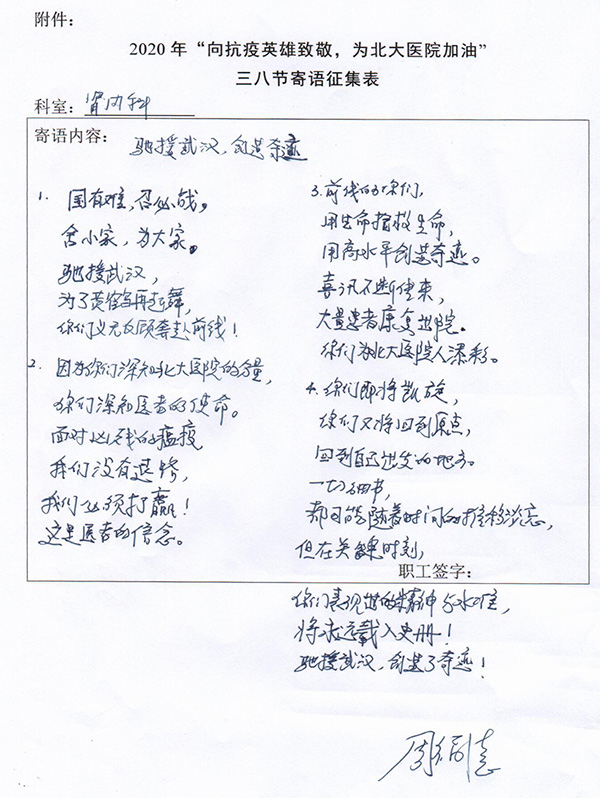 附件：
2020年“向抗疫英雄致敬，为北大医院加油”
三八节寄语征集表
科室：肾内科
寄语内容：
驰援武汉，创造奇迹
1. 国有难，召必战。
舍小家，为大家。
驰援武汉，
为了黄鹤再起舞，
你们义无反顾奔赴前线！
2. 因为你们深知北大医院的分量，
你们深知医者的使命。
面对凶残的瘟疫
我们没有退路，
我们必须打赢！
这是医者的信念。
3. 前线的你们，
用生命拯救生命，
用高水平创造奇迹。
喜讯不断传来，
大量患者康复出院。
你们为北大医院人添彩。
4. 你们即将凯旋，
你们又将回到原点，
回到自己出发的地方。
一切细节，
都可能随着时间的推移淡忘，
但在关键时刻，
职工签字：
你们表现出的精神与水准，
将永远载入史册！
驰援武汉，创造了奇迹！